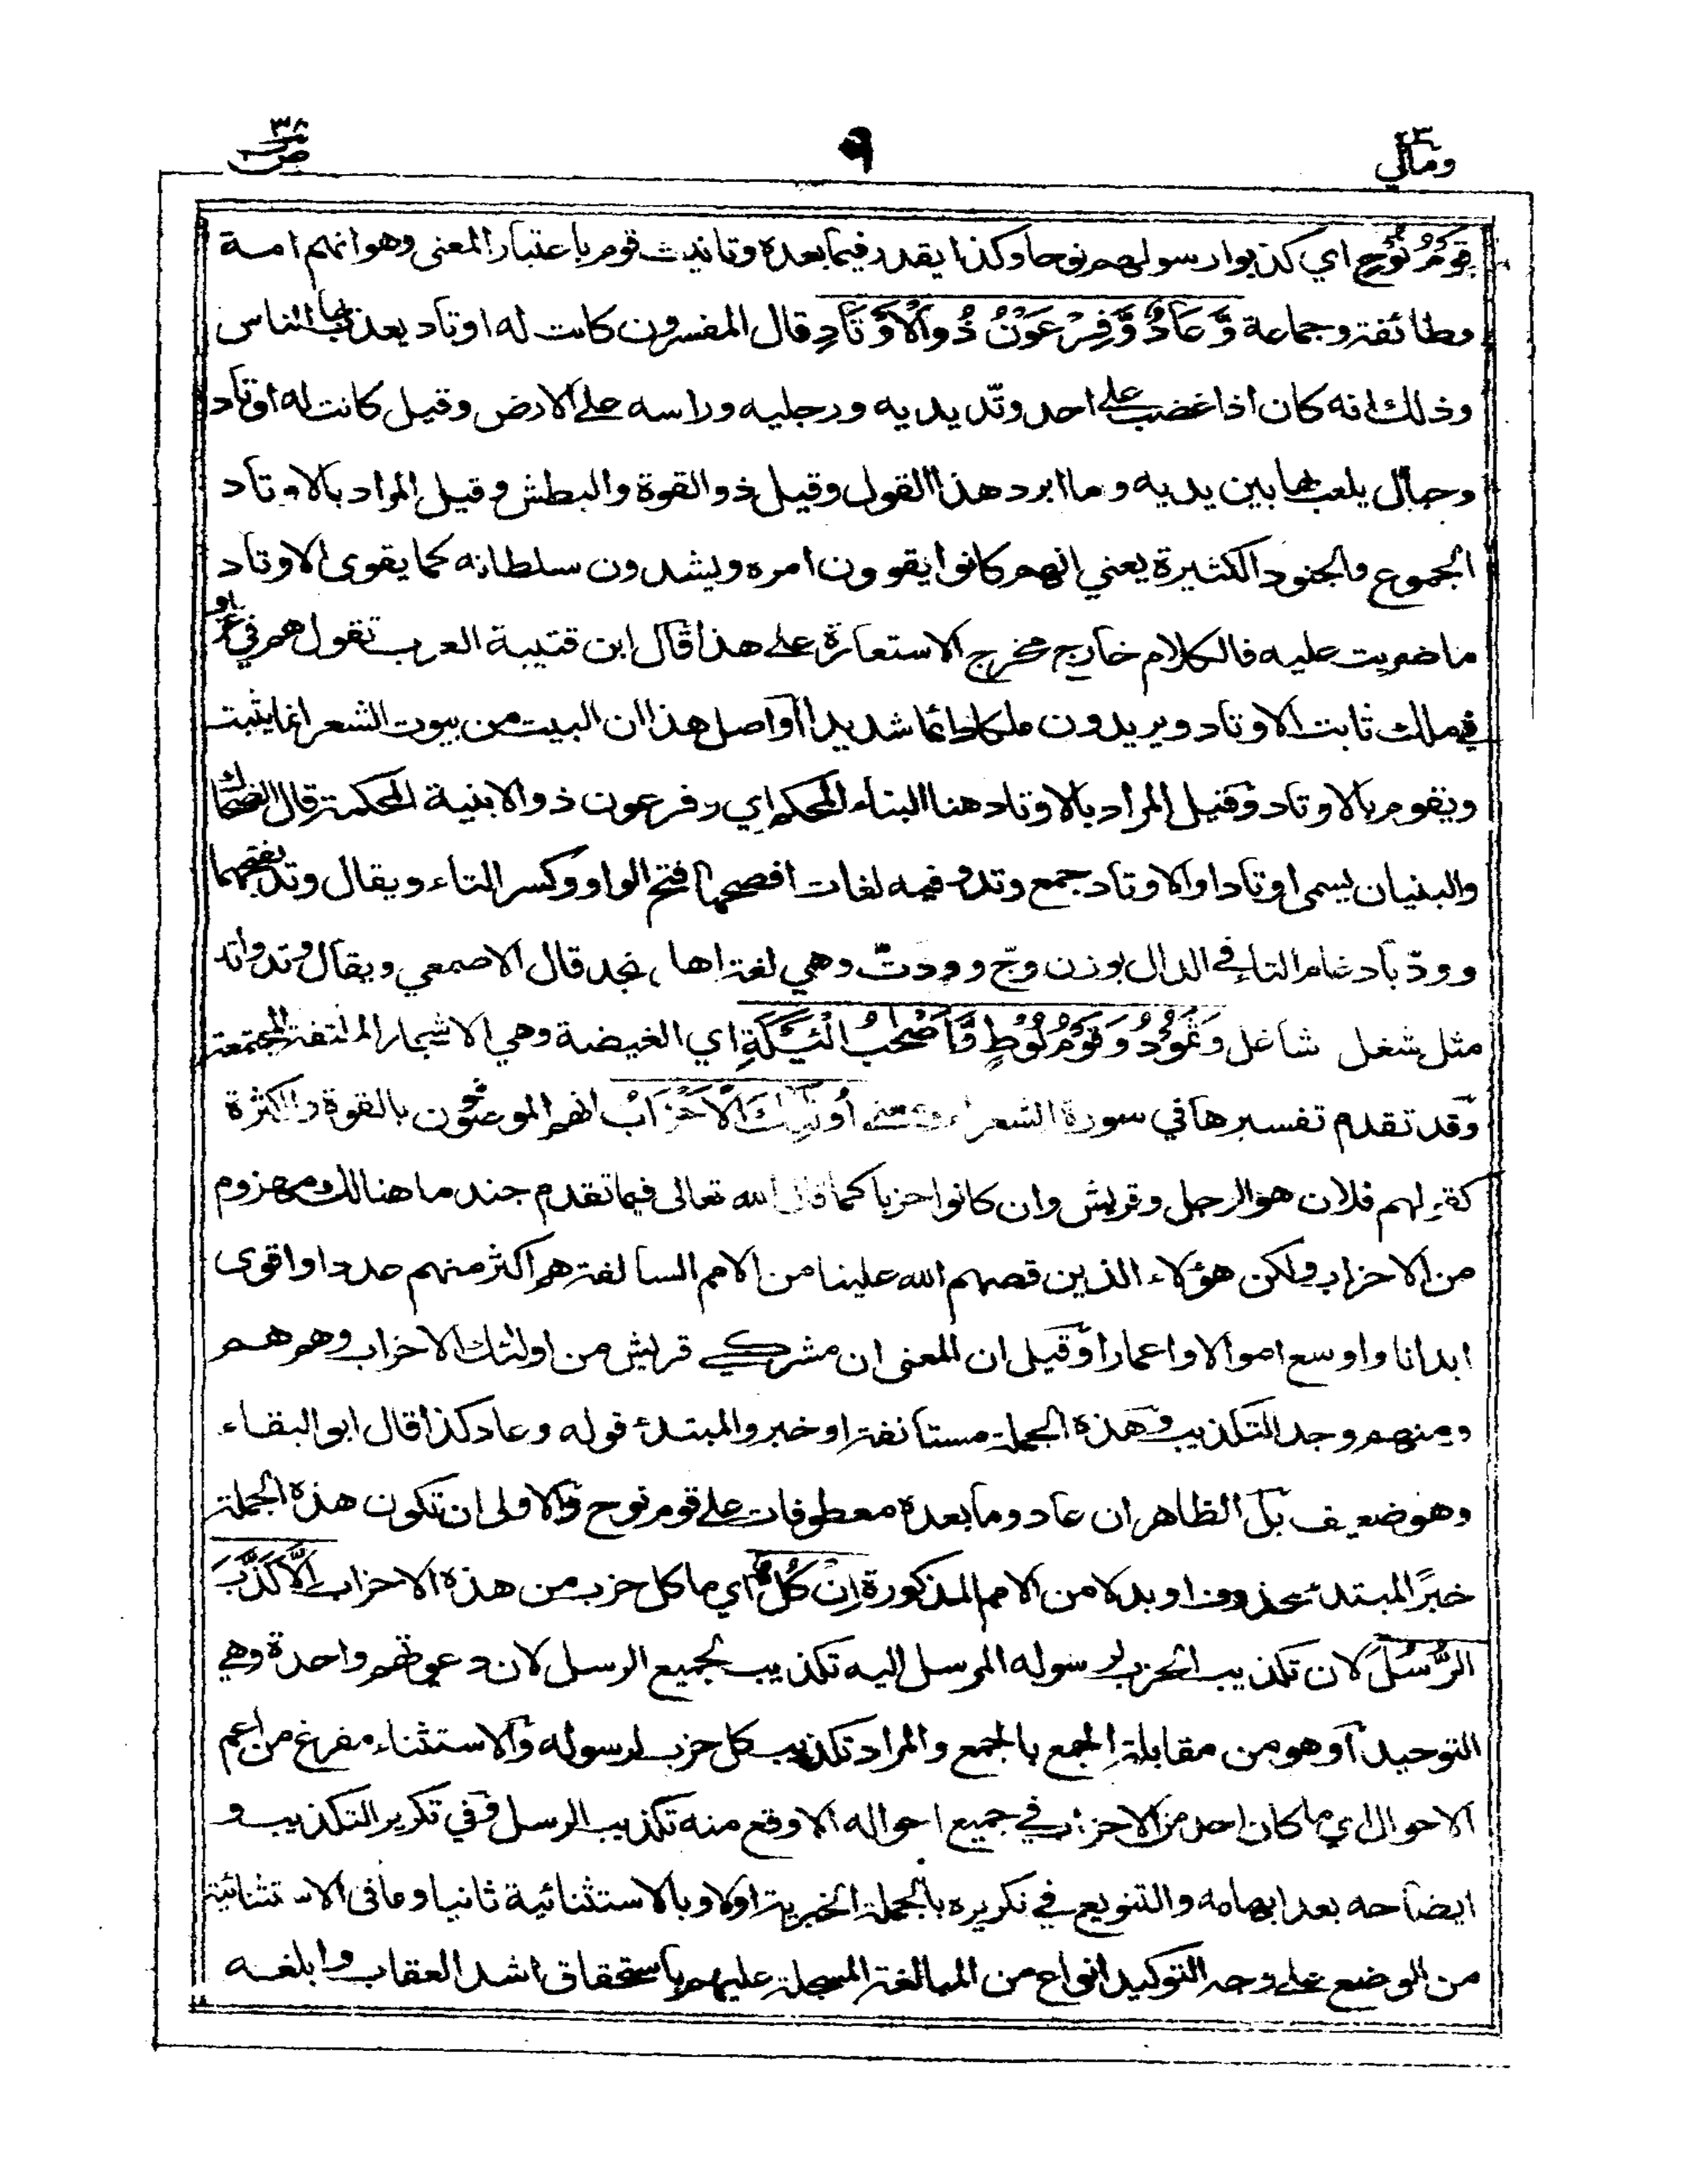 ومالي ٢٣
٩
ص ٣٨
قَوْمُ نُوْحٍ اي كذبوا رسولهم نوحا وكذا يقدر فيما بعده وتانيث قوم باعتبار المعنى وهو انهم امة
وطائفة وجماعة وَّعَادٌ وَّفِرْعَوْنُ ذُو الْاَوْتَادِ قال المفسرون كانت له اوتاد يعذب بها الناس
وذلك انه كان اذا غضب على احد وتّد يديه ورجليه وراسه على الارض وقيل كانت له اوتاد
وحبال يلعب بها بين يديه وما ابرد هذا القول وقيل ذو القوة والبطش وقيل المراد بالاوتاد
الجموع والجنود الكثيرة يعني انهم كانوا يقوون امره ويشدون سلطانه كما يقوى الاوتاد
ما ضربت عليه فالكلام خارج مخرج الاستعارة على هذا قال ابن قتيبة العرب تقول هم في عز او
في ملك ثابت الاوتاد ويريدون ملكا دائما شديدا واصل هذا ان البيت من بيوت الشعر انما يثبت
ويقوم بالاوتاد وقيل المراد بالاوتاد هنا البناء المحكم اي وفرعون ذو الابنية المحكمة قال الضحاك
والبنيان يسمى اوتادا والاوتاد جمع وتد وفيه لغات افصحها فتح الواو وكسر التاء ويقال وتد بفتحهما
وودّ بادغام التاء في الدال بوزن وجّ وودتّ وهي لغة اهل نجد قال الاصمعي ويقال وتد واتد
مثل شغل شاغل وَثَمُوْدُ وَقَوْمُ لُوْطٍ وَّاَصْحٰبُ الْئَيْكَةِ اي الغيضة وهي الاشجار الملتفة المجتمعة
وقد تقدم تفسيرها في سورة الشعراء ومعنى اُولٰئِكَ الْاَحْزَابُ انهم الموصوفون بالقوة والكثرة
كقولهم فلان هو الرجل وقريش وان كانوا حزبا كما قال الله تعالى فيما تقدم جند ما هنالك مهزوم
من الاحزاب ولكن هؤلاء الذين قصهم الله علينا من الامم السالفة هم اكثر منهم عددا واقوى
ابدانا واوسع اموالا واعمارا وقيل ان المعنى ان مشركي قريش من اولئك الاحزاب وهم هم
ومنهم وجد التكذيب وهذه الجملة مستانفة او خبر والمبتدء قوله وعاد كذا قال ابو البقاء
وهو ضعيف بل الظاهر ان عاد وما بعده معطوفات على قوم نوح والاولى ان تكون هذه الجملة
خبرا لمبتدء محذوف او بدلا من الامم المذكورة اِنْ كُلٌّ اي ما كل حزب من هذه الاحزاب اِلَّا كَذَّبَ
الرُّسُلَ لان تكذيب الحزب لرسوله المرسل اليه تكذيب لجميع الرسل لان دعوتهم واحدة وهي
التوحيد او هو من مقابلة الجمع بالجمع والمراد تكذيب كل حزب لرسوله والاستثناء مفرغ من اعم
الاحوال اي ما كان احد من الاحزاب في جميع احواله الا وقع منه تكذيب الرسل وفي تكرير التكذيب و
ايضاحه بعد ابهامه والتنويع في تكريره بالجملة الخبرية اولا وبالاستثنائية ثانيا وما في الاستثنائية
من الوضع على وجه التوكيد انواع من المبالغة المسجلة عليهم باستحقاق اشد العقاب وابلغه